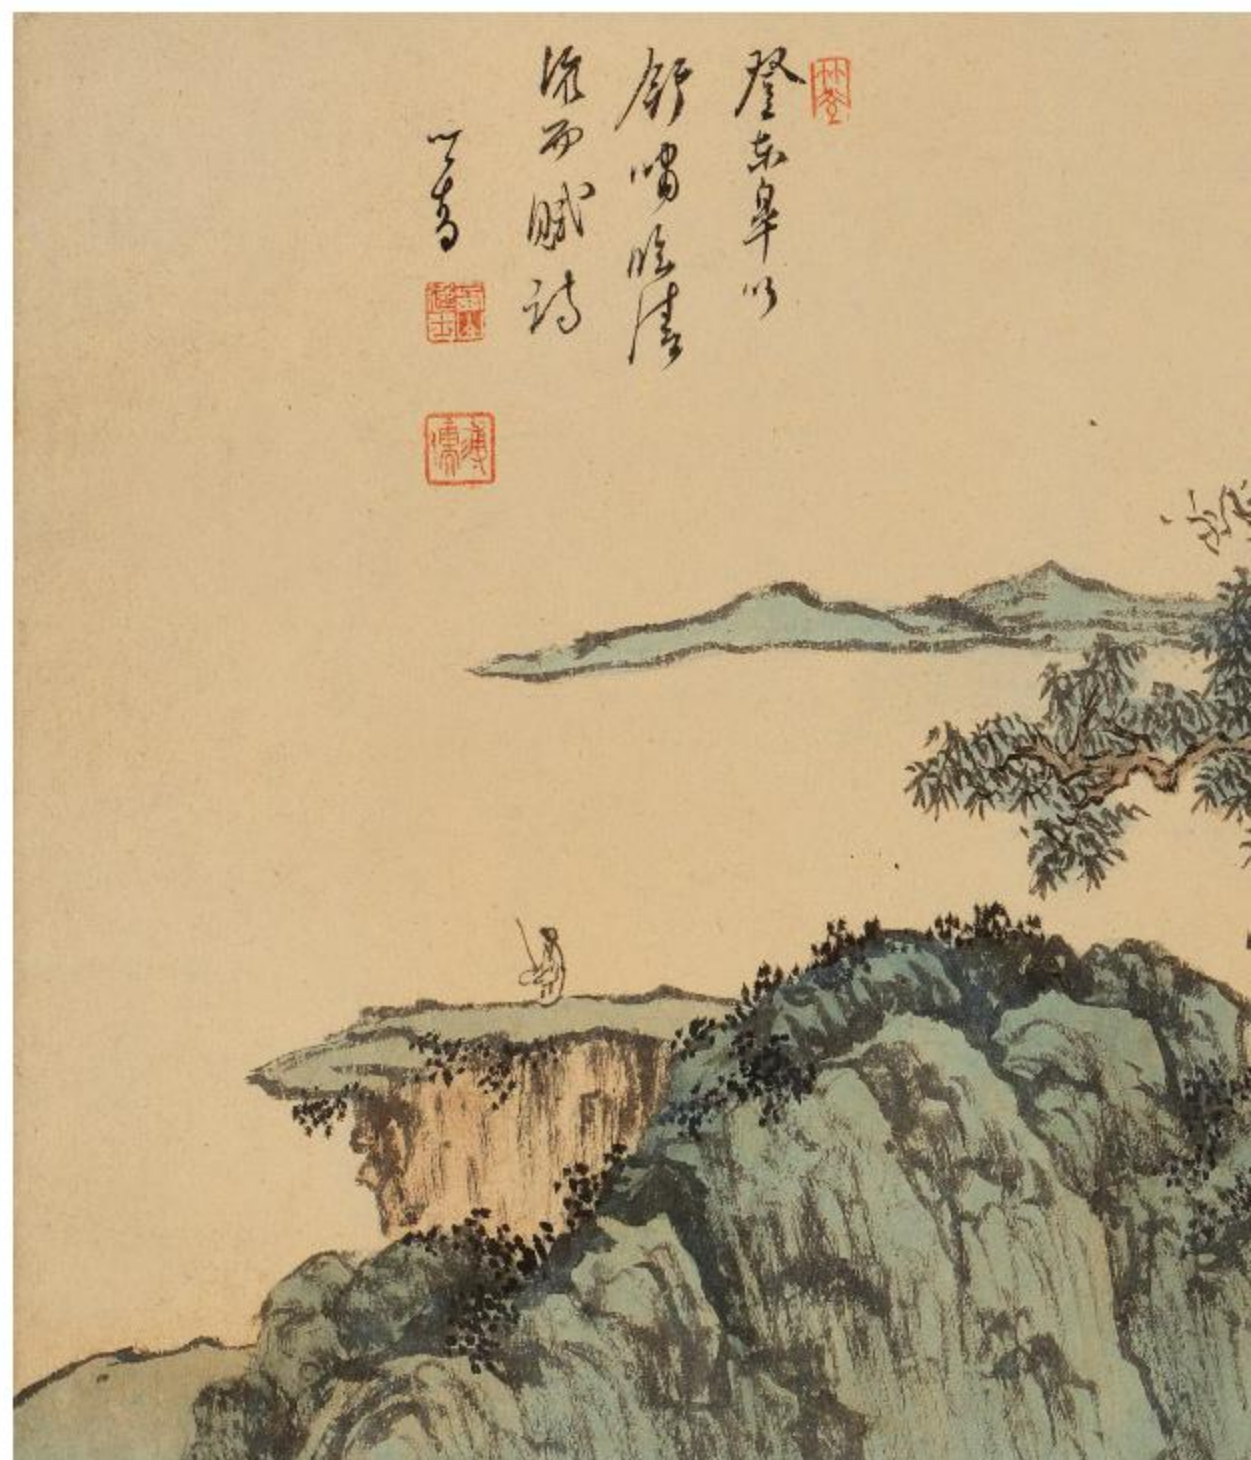 登東皋以
舒嘯臨清
流而賦詩
心畬
溥儒